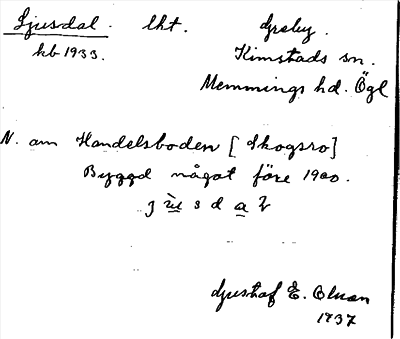 Ljusdal. lht. Grsby.
kb 1933. Kimstads sn.
Memmings hd. Ögl
N. om Handelsboden [Skogsro]
Byggd något före 1900.
Gustaf E. Olson
1937